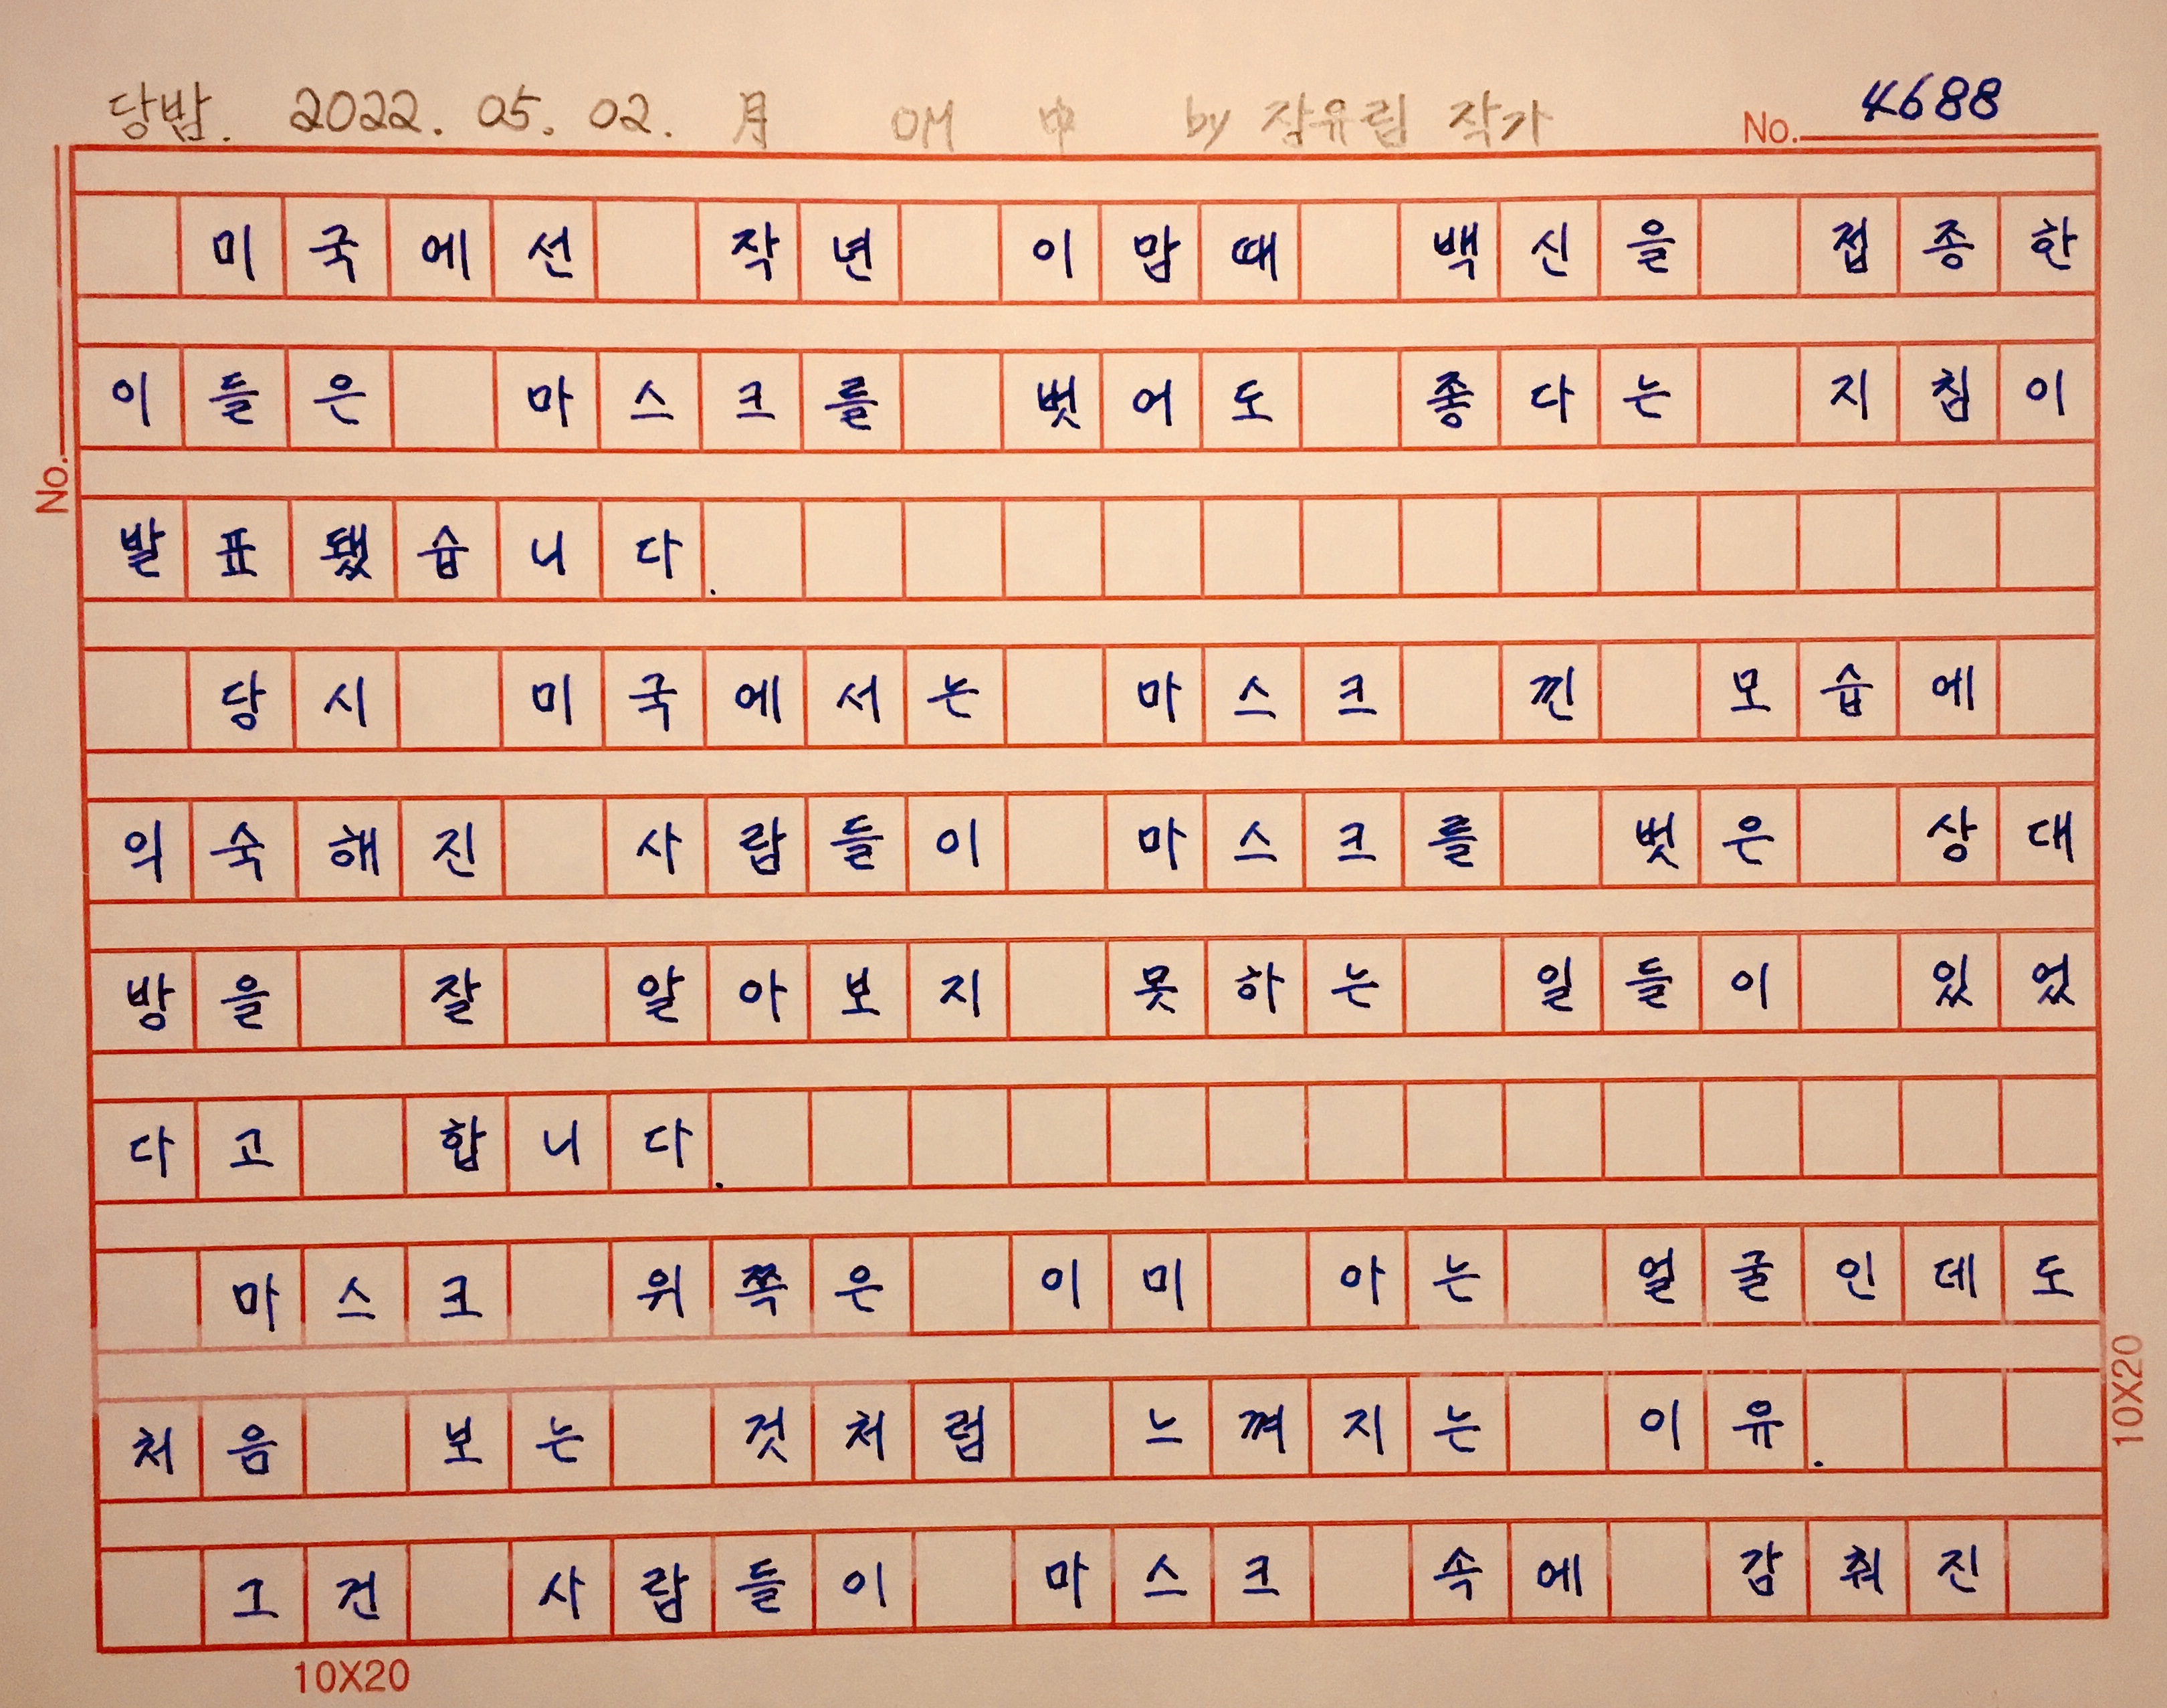 당밤. 2022. 05. 02. 月 OM 中 by 장유림 작가 No. 4688
미국에선 작년 이맘때 백신을 접종한
이들은 마스크를 벗어도 좋다는 지침이
No.
발표됐습니다.
당시 미국에서는 마스크 낀 모습에
익숙해진 사람들이 마스크를 벗은 상대
방을 잘 알아보지 못하는 일들이 있었
다고 합니다.
마스크 위쪽은 이미 아는 얼굴인데도
처음 보는 것처럼 느껴지는 이유.
10X20
그건 사람들이 마스크 속에 감춰진
10X20